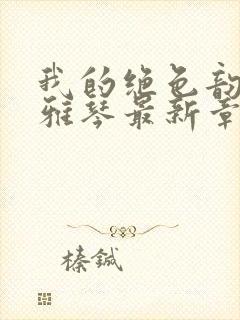 我的绝色韵
雅琴最新章
榛鍼